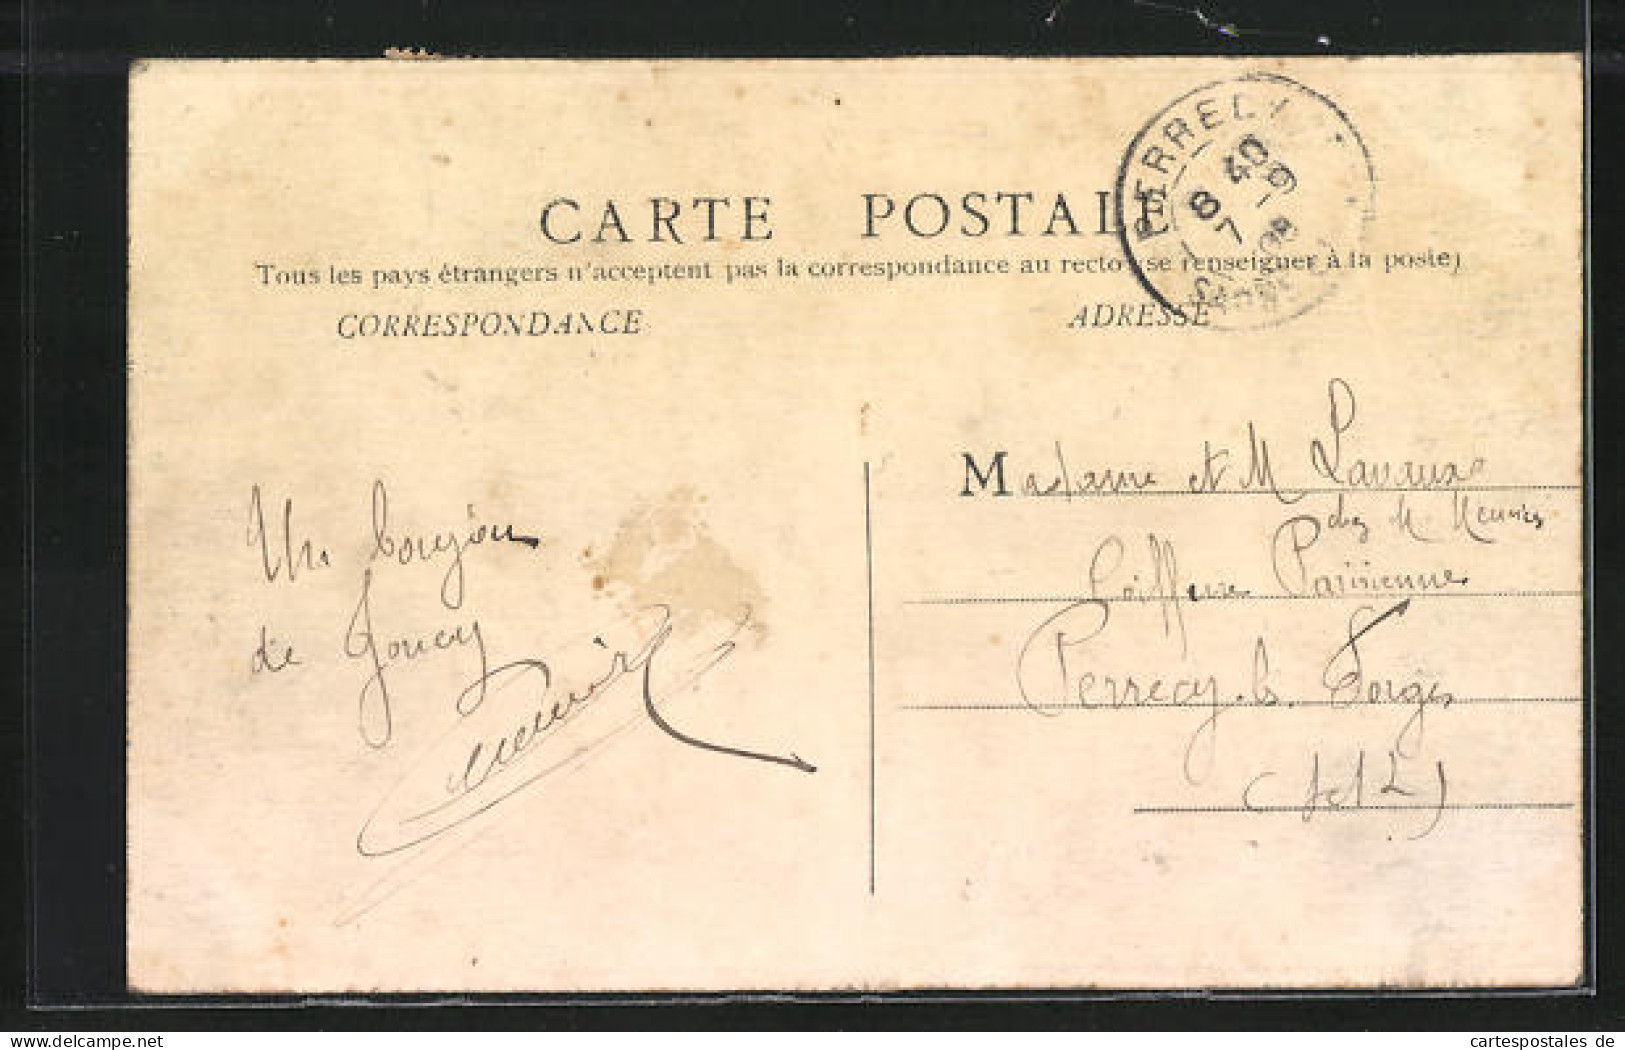 CARTE POSTALE
Tous les pays étrangers n'acceptent pas la correspondance au recto (se renseigner à la poste)
CORRESPONDANCE
ADRESSE
PERRECY
8 40
7 - 9
08
Un bonjour
de Joncy
Meunier
Madame et M Lavaux
chez M. Meunier
Coiffure Parisienne
Perrecy-les-Forges
(S et L)
cartespostales de